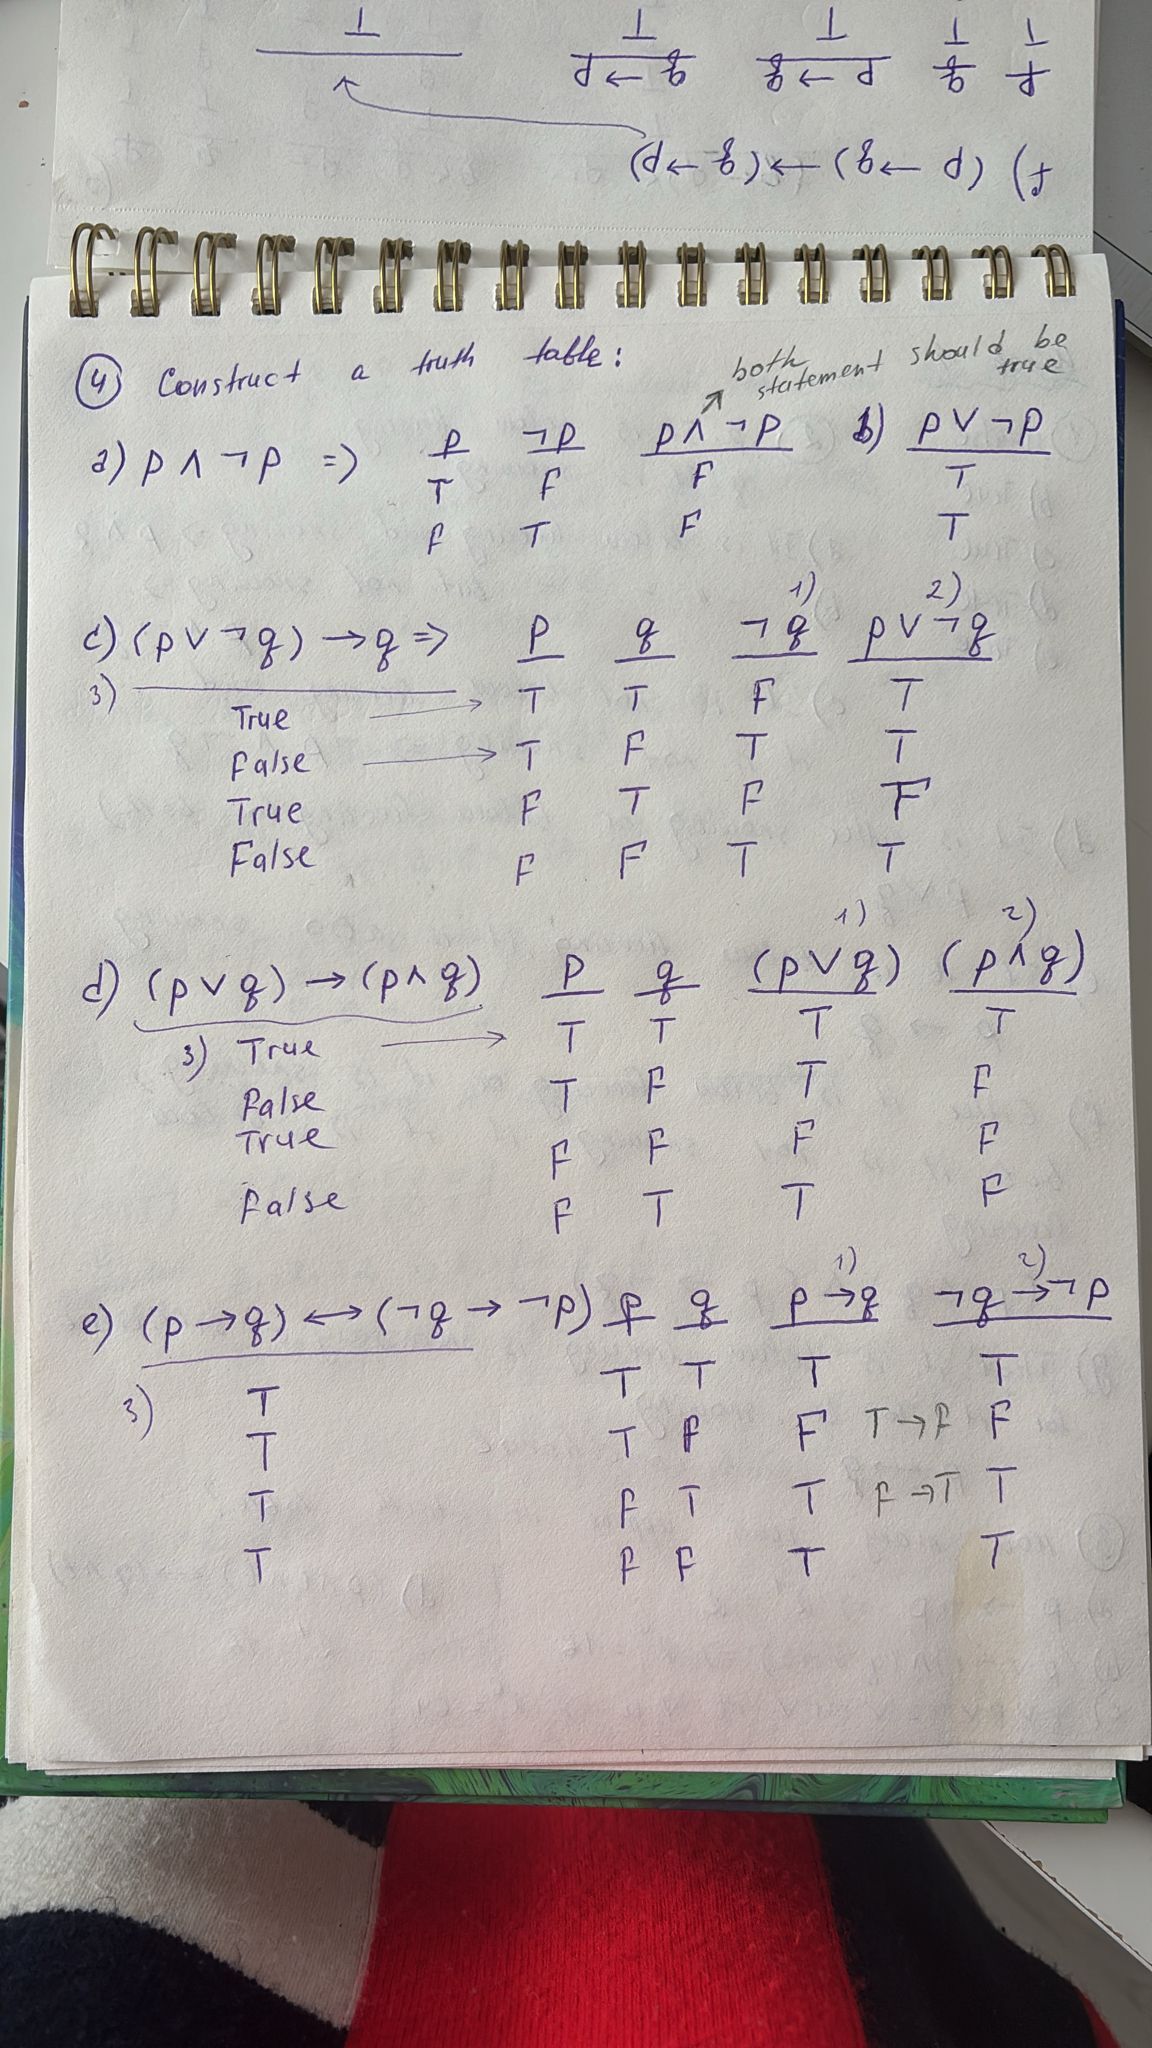 f) (p → q) → (q → p)
p q p → q q → p
T T T T T
4) Construct a truth table:
both statement should be true
a) p ∧ ¬p => p ¬p p ∧ ¬p b) p ∨ ¬p
T F F T
F T F T
1) 2)
c) (p ∨ ¬q) → q => p q ¬q p ∨ ¬q
3) True → T T F T
False → T F T T
True F T F F
False F F T T
1) 2)
d) (p ∨ q) → (p ∧ q) p q (p ∨ q) (p ∧ q)
3) True → T T T T
False T F T F
True F F F F
False F T T F
1) 2)
e) (p → q) ↔ (¬q → ¬p) p q p → q ¬q → ¬p
3) T T T T T
T T F F T → F F
T F T T F → T T
T F F T T